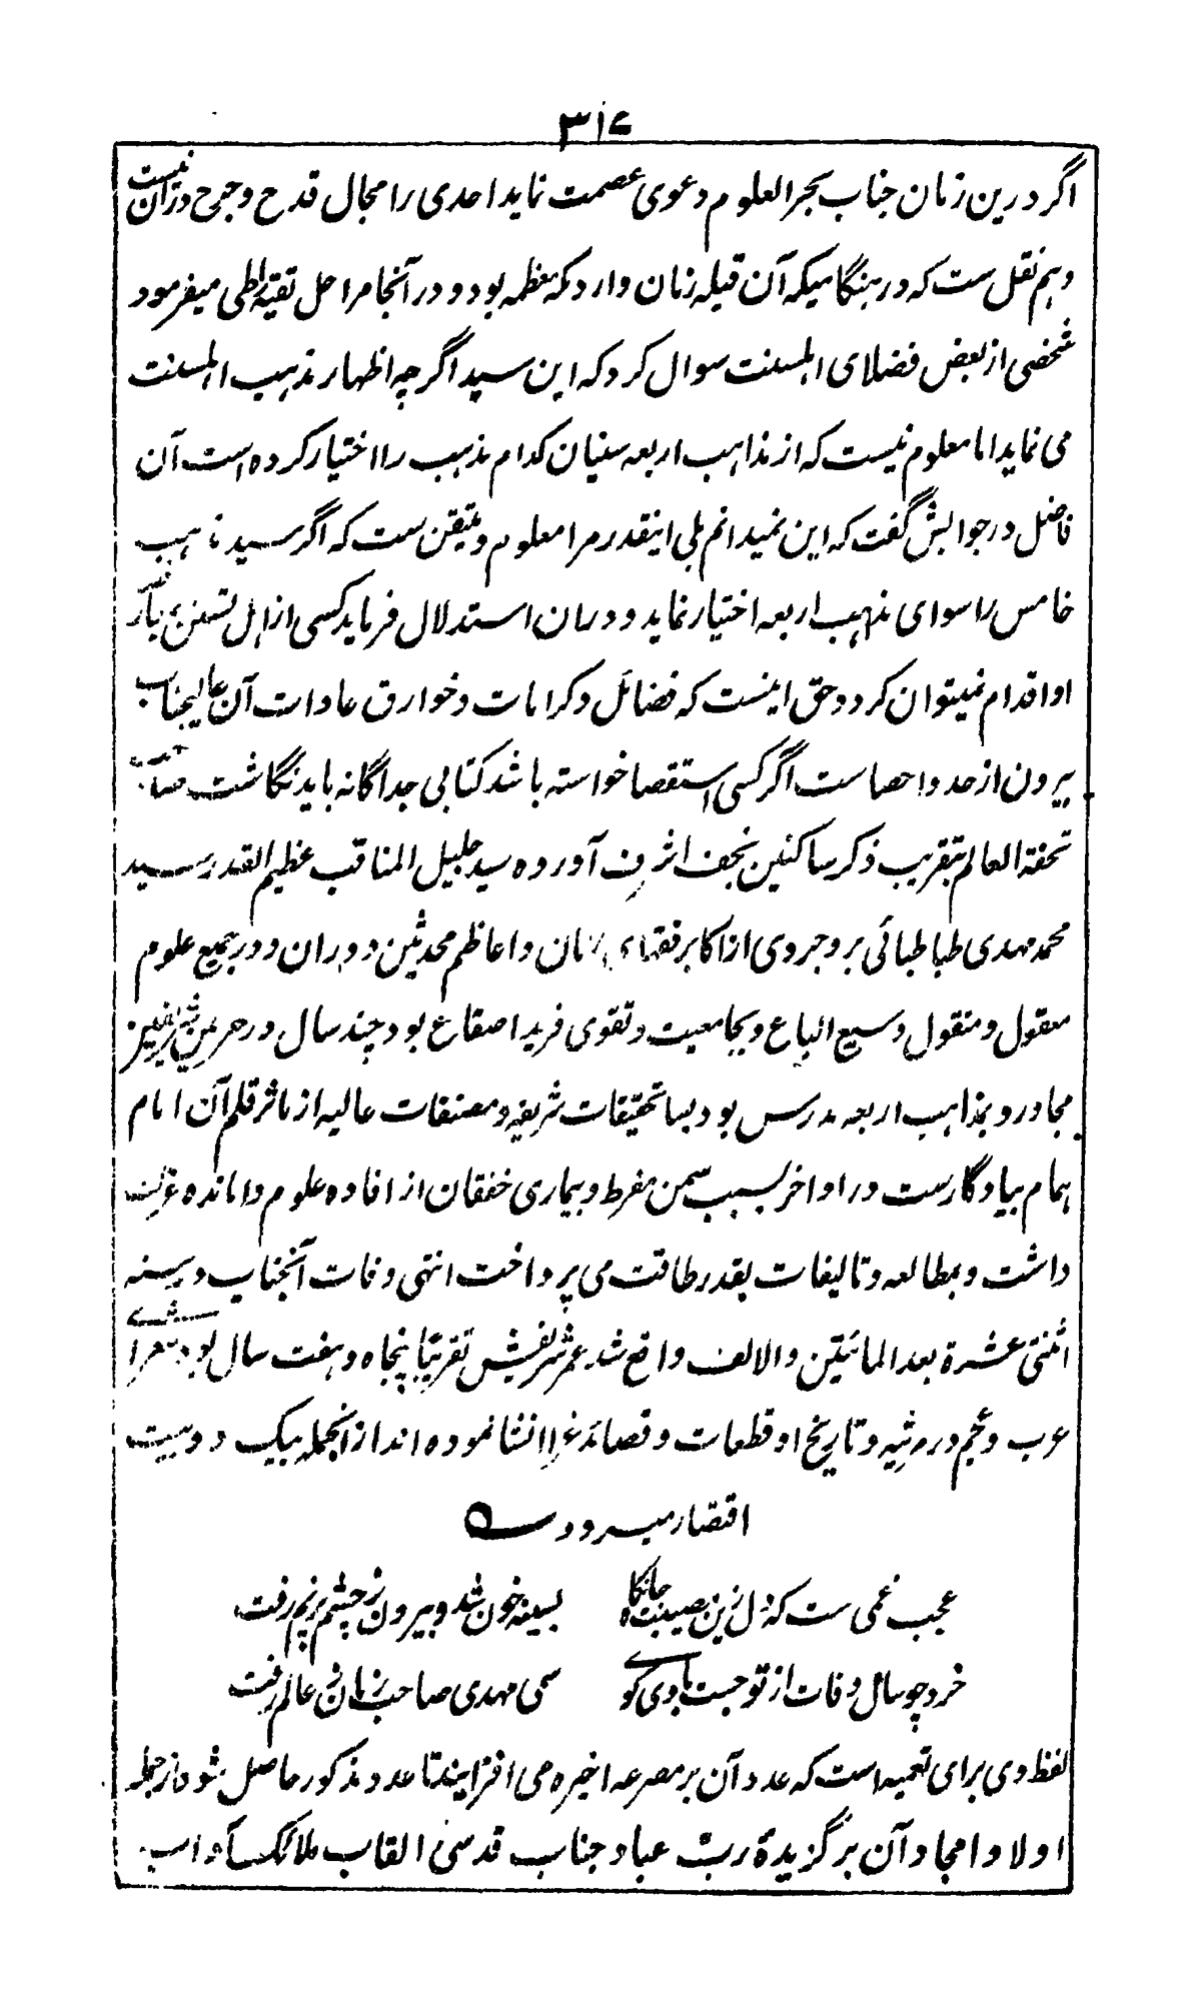 ۳۱۶
اگر درین زمان جناب بحر العلوم دعوی عصمت نماید احدی را مجال قدح و جرح در آن نیست
و هم نقل ست که در هنگامیکه آن قبله زمان وارد مکه معظمه بود و در آنجا مراحل تقیه را طی میفرمود
شخصی از بعض فضلای اہلسنت سوال کرد که این سید اگر چه اظهار مذہب اہلسنت
می نماید اما معلوم نیست که از مذاہب اربعه سنیان کدام مذہب را اختیار کرده است آن
فاضل در جوابش گفت که این نمیدانم بلی اینقدر مرا معلوم و متیقن ست که اگر سید مذہب
خامس را سوای مذہب اربعه اختیار نماید و در ان استدلال فرماید کسی از اہل تسنن بر
او اقدام نمیتوان کرد و حق اینست که فضائل و کرامات و خوارق عادات آن عالیجناب
بیرون از حد و احصاست اگر کسی استقصا خواسته باشد کتابی جداگانه باید نگاشت صاحب
تحفة العالم بتقریب ذکر ساکنین نجف اشرف آورده سید جلیل المناقب عظیم القدر سید
محمد مہدی طباطبائی بروجردی از اکابر فقهاء زمان و اعاظم محدثین دوران و در جمیع علوم
معقول و منقول وسیع الباع و بجامعیت و تقوی فرید اصقاع بود چند سال در حرمین شریفین
مجاور و بمذاہب اربعه مدرس بود بسا تحقیقات شریفه و مصنفات عالیه از مآثر قلم آن امام
ہمام بیادگار ست در اواخر بسبب سمن مفرط و بیماری خفقان از افاده علوم وامانده عزلت
داشت و بمطالعه و تالیفات بقدر طاقت می پرداخت انتہی وفات آنجناب در سنه
اثنتی عشرة بعد المائتین و الالف واقع شد عمر شریفش تقریباً پنجاه و ہفت سال بود شعرای
عرب و عجم در مرثیه و تاریخ او قطعات و قصائد غرا انشا نموده اند از انجمله بیک دو بیت
اقتصار میرود
عجب غمی ست که دل زین مصیبت جانکاه بسینه خون شد و بیرون ز چشم پر نم رفت
خرد چو سال وفات از تو جست با وی گو سمی مہدی صاحب زمان ز عالم رفت
لفظ وی برای تعمیه است که عدد آن بر مصرعه اخیره می افزایند تا عدد مذکور حاصل شود از جمله
اولاد امجاد آن برگزیدۀ رب عباد جناب قدسی القاب ملائک آداب